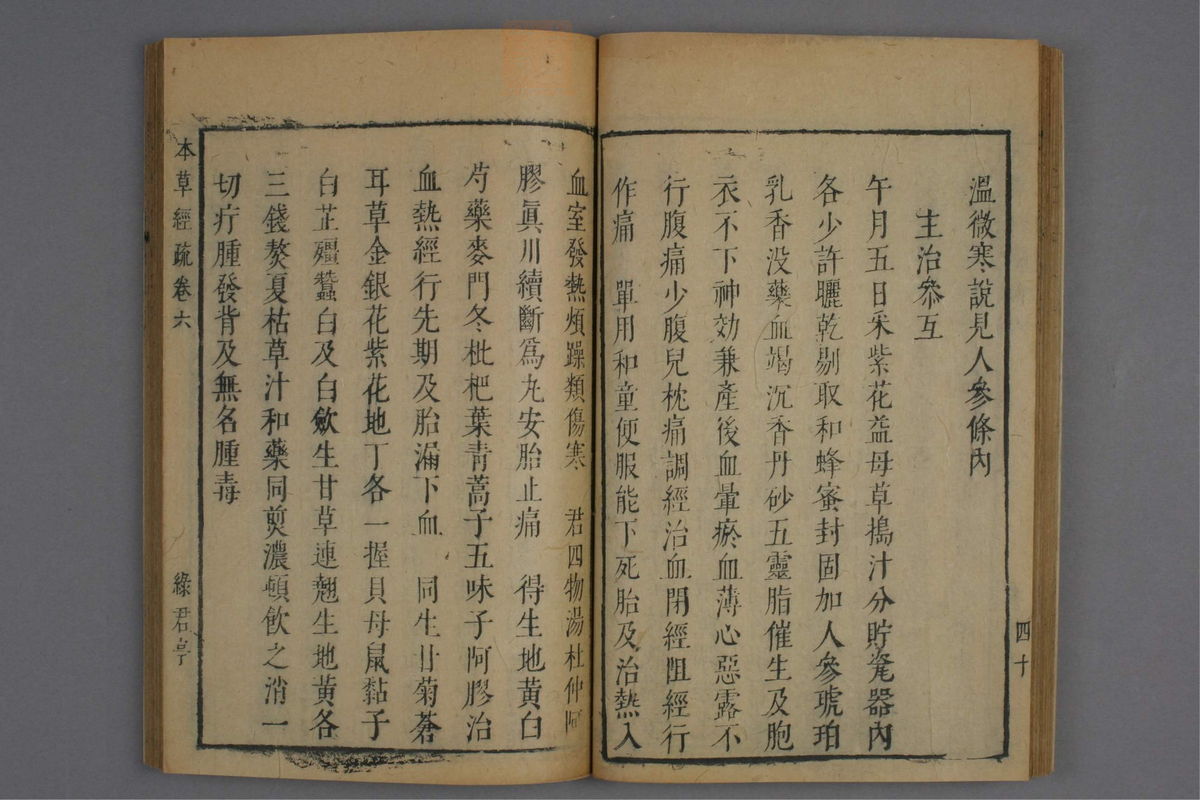 溫微寒說見人參條內
主治參互
午月五日采紫花益母草搗汁分貯甆器內
各少許曬乾剔取和蜂蜜封固加人參琥珀
乳香没藥血竭沉香丹砂五靈脂催生及胞
衣不下神効兼產後血暈瘀血薄心惡露不
行腹痛少腹兒枕痛調經治血閉經阻經行
作痛　單用和童便服能下死胎及治熱入
四十
血室發熱煩躁類傷寒　君四物湯杜仲阿
膠眞川續斷爲丸安胎止痛　得生地黄白
芍藥麥門冬枇杷葉青蒿子五味子阿膠治
血熱經行先期及胎漏下血　同生甘菊蒼
耳草金銀花紫花地丁各一握貝母鼠黏子
白芷殭蠶白及白歛生甘草連翹生地黄各
三錢熬夏枯草汁和藥同煎濃頓飲之消一
切疔腫發背及無名腫毒
本草經疏卷六
綠君亭